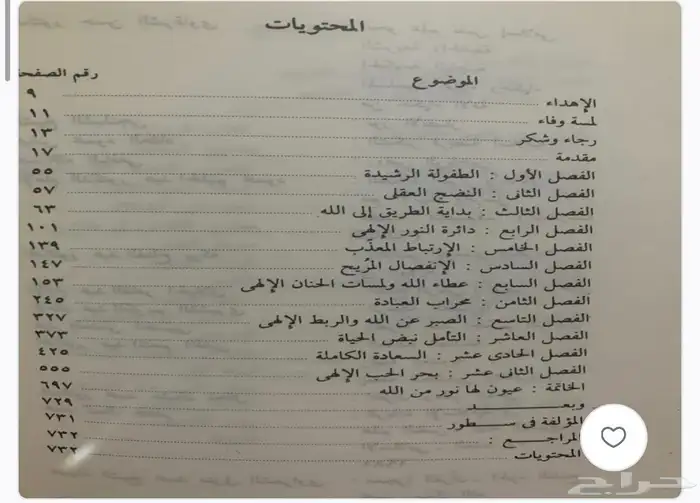 المحتويات
الموضوع رقم الصفحة
الإهداء ٩
لمسة وفاء ١١
رجاء وشكر ١٣
مقدمة ١٧
الفصل الأول : الطفولة الرشيدة ٥٥
الفصل الثانى : النضج العقلى ٥٧
الفصل الثالث : بداية الطريق إلى الله ٦٣
الفصل الرابع : دائرة النور الإلهى ١٠١
الفصل الخامس : الإرتباط المعذّب ١٣٩
الفصل السادس : الإنفصال المُريح ١٤٧
الفصل السابع : عطاء الله ولمسات الحنان الإلهى ١٥٣
الفصل الثامن : محراب العبادة ٢٤٥
الفصل التاسع : الصبر عن الله والربط الإلهى ٣٢٧
الفصل العاشر : التأمل نبض الحياة ٣٧٣
الفصل الحادى عشر : السعادة الكاملة ٤٢٥
الفصل الثانى عشر : بحر الحب الإلهى ٥٥٥
الخاتمة : عيون لها نور من الله ٦٩٧
وبعــــــد ٧٢٩
المؤلفة فى سـطور ٧٣١
المراجع : ٧٣٢
المحتويات ٧٣٢
حراج